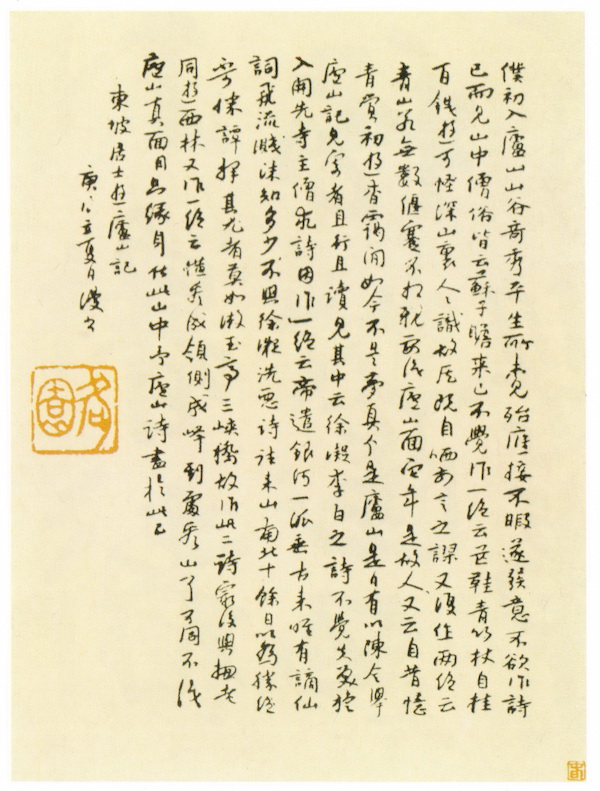 僕初入廬山山谷奇秀平生所未見殆應接不暇遂發意不欲作詩
已而見山中僧俗皆云蘇子瞻来已不覺作一絶云芒鞋青竹杖自挂
百錢遊可怪深山裏人々識故侯既自哂前言之謬又復作兩絶云
青山若無數偃蹇不相親要識廬山面他年是故人又云自昔憶
青賞初遊杳靄間如今不是夢真个是廬山是日有以陳令舉
廬山記見寄者且行且讀見其中云徐凝李白之詩不覺失笑旋
入開先寺主僧求詩因作一絶云帝遣銀河一派垂古来唯有謫仙
詞飛流濺沫知多少不與徐凝洗惡詩往来山南北十餘日以為勝絶
擇其尤者莫如漱玉亭三峽橋故作此二詩最後與揔老
同遊西林又作一絶云橫看成嶺側成峰到處看山了不同不識
廬山真面目只緣身在此山中予廬山詩盡於此已
東坡居士遊廬山記
夏日漫書